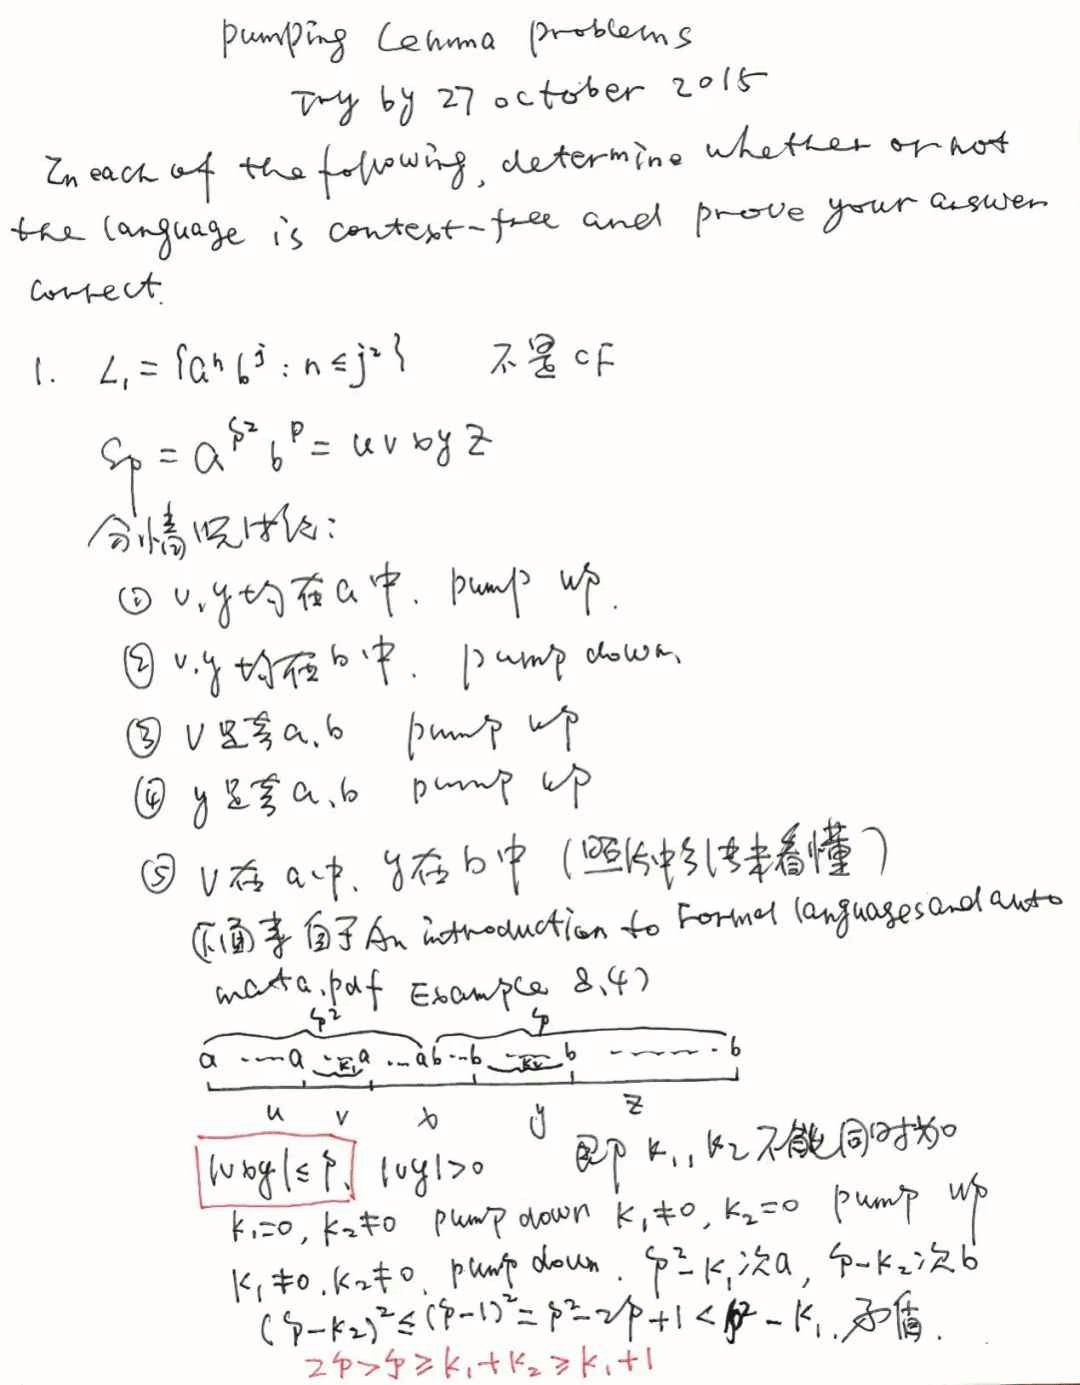 Pumping Lemma problems
Try by 27 october 2015
In each of the following, determine whether or not
the language is context-free and prove your answer
correct.
1. L₁ = {aⁿ bʲ : n ≤ j²} 不是 CF
Sₚ = a^{p²} b^p = uvxyz
分情况讨论:
① v,y均在a中. pump up.
② v.y均在b中. pump down.
③ v包含a.b pump up
④ y包含a.b pump up
⑤ v在a中, y在b中 (照片中引述未看懂)
(下面来自于An introduction to Formal languages and auto
mata.pdf Example 8.4)
p² p
a ---- a ... a ... a b ... b ... b ------- . b
k₁ k₂
u v x y z
|vxy| ≤ p, |vy|>0 即 k₁, k₂ 不能同时为0
k₁=0, k₂≠0 pump down k₁≠0, k₂=0 pump up
k₁≠0, k₂≠0, pump down. p²-k₁次a, p-k₂次b
(p-k₂)² ≤ (p-1)² = p²-2p+1 < p²-k₁. 矛盾.
2p > p ≥ k₁+k₂ ≥ k₁+1